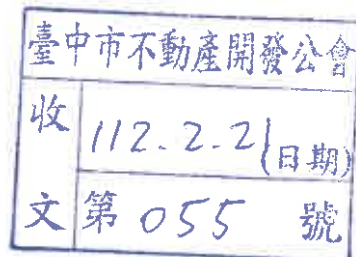 臺中市不動產開發公會
收 112.2.21(日期)
文 第 055 號